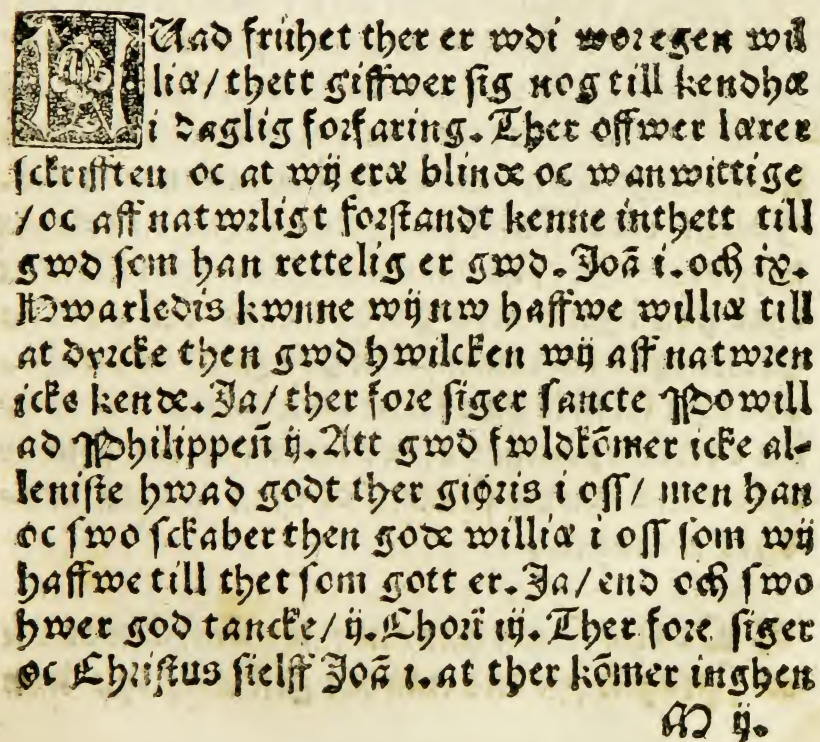 HUad friihet ther er wdi wor egen wil
liæ/ thett giffwer sig nog till kendhæ
i daglig forfaring. Ther offwer lærer
sckrifften oc at wij eræ blinde oc wanwittige
/oc aff natwrligt forstandt kenne inthett till
gwd som han rettelig er gwd. Joã i. och ix.
Hwarledis kwnne wij nw haffwe williæ till
at dyrcke then gwd hwilcken wij aff natwren
icke kende. Ja/ ther fore siger sancte Powill
ad Philippeñ ij. Att gwd fwldkõmer icke al-
leniste hwad godt ther giøris i oss/ men han
oc swo sckaber then gode williæ i oss som wij
haffwe till thet som gott er. Ja/ end och swo
hwer god tancke/ ij. Chorï iij. Ther fore siger
oc Christus sielff Joã i. at ther kõmer inghen
M ij.